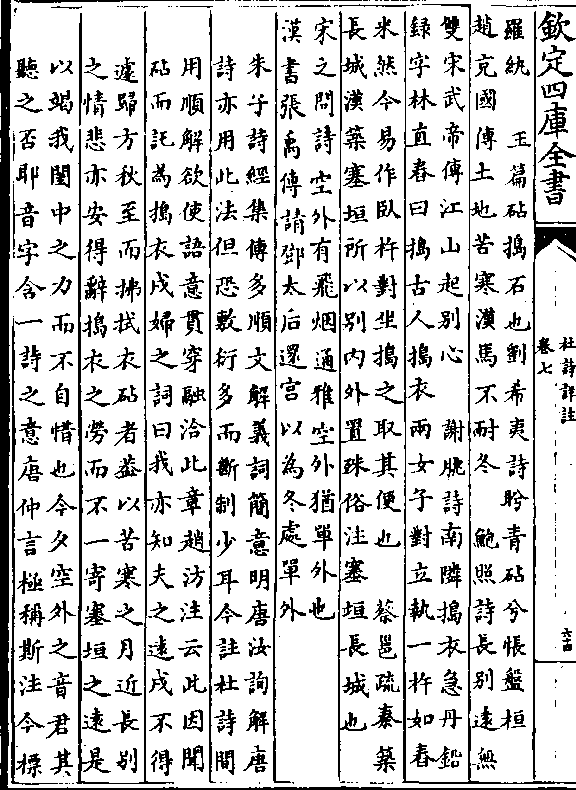 欽定四庫全書
杜詩詳註
卷七
六十四
羅紈　王篇砧擣石也劉希夷詩盻青砧兮悵盤桓
趙充國傳土地苦寒漢馬不耐冬　鮑照詩長別遠無
雙宋武帝傳江山起別心　謝脁詩南隣擣衣急丹鉛
録字林直舂曰擣古人擣衣兩女子對立執一杵如舂
米然今易作臥杵對坐擣之取其便也　蔡邕疏秦築
長城漢築塞垣所以別内外置殊俗注塞垣長城也
宋之問詩空外有飛烟通雅空外猶單外也
漢書張禹傳請鄧太后還宮以為冬處單外
朱子詩經集傳多順文解義詞簡意明唐汝詢解唐
詩亦用此法但恐敷衍多而斷制少耳今註杜詩間
用順解欲使語意貫穿融洽此章趙汸注云此因聞
砧而託為擣衣戍婦之詞曰我亦知夫之遠戍不得
遽歸方秋至而拂拭衣砧者葢以苦寒之月近長别
之情悲亦安得辭擣衣之勞而不一寄塞垣之遠是
以竭我閨中之力而不自惜也今夕空外之音君其
聽之否耶音字含一詩之意唐仲言極稱斯注今標